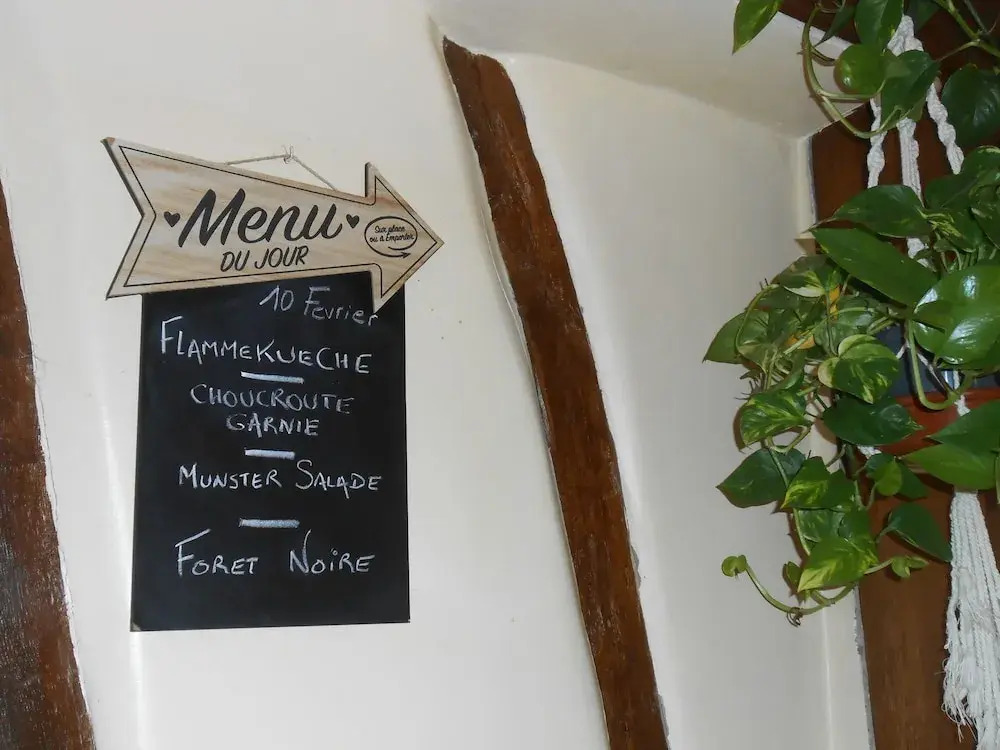 Menu
DU JOUR
Sur place
ou à Emporter
10 Fevrier
FLAMMEKUECHE
CHOUCROUTE
GARNIE
MUNSTER SALADE
FORET NOiRE